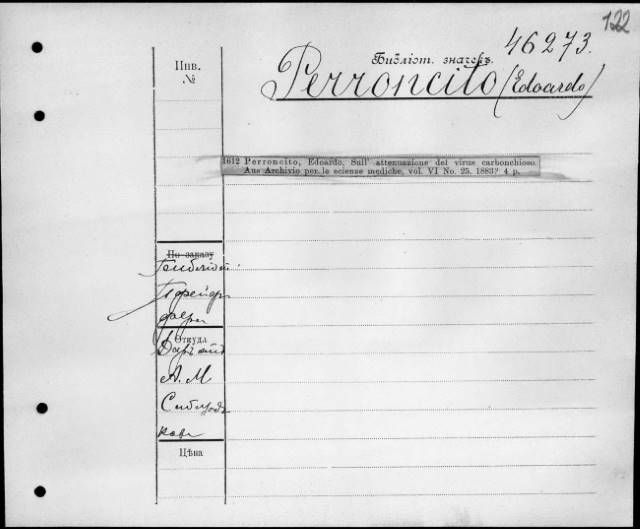 122
46273.
Инв.
№
Библіот. значекъ.
Perroncito (Edoardo)
1612 Perroncito, Edoardo, Sull' attenuazione del virus carbonchioso
Aus Archivio per le scienze mediche, vol. VI No. 25. 1883? 4 p.
По заказу
Откуда
А. М
Сибиряк
Цѣна